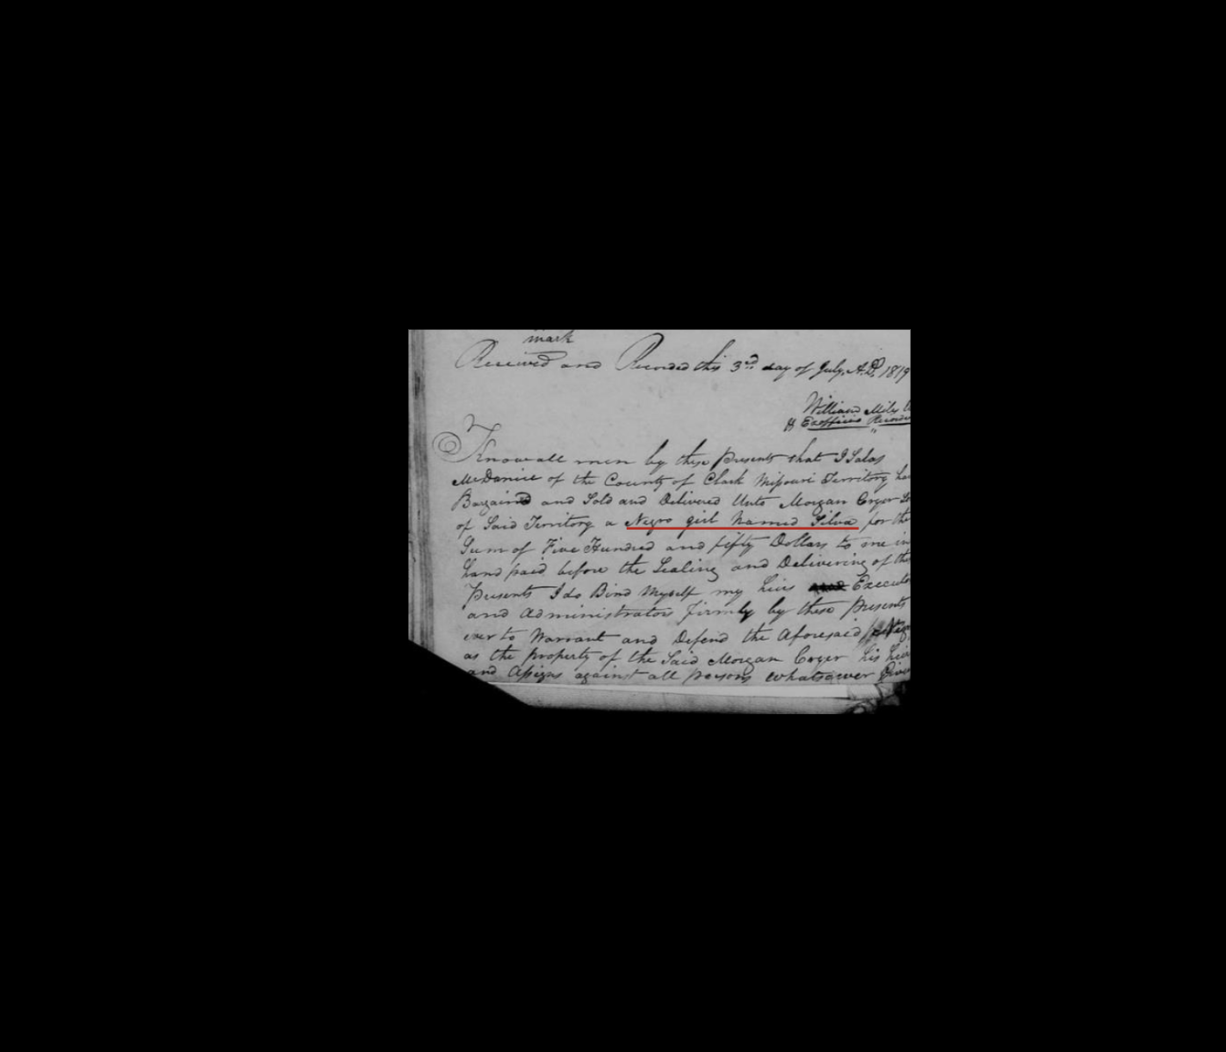 mark
Received and Recorded this 3rd day of July A.D. 1819
William Miles
Exofficio Recorder
Know all men by these Presents that I Salas
McDanice of the County of Clark Missouri Territory ha
Bargained and Sold and Delivered Unto Morgan Cryer
of Said Territory a Negro girl Named Silva for the
Sum of Five Hundred and fifty Dollars to me in
hand paid before the Sealing and Delivering of the
Presents I do Bind Myself my heirs and Executo
and Administrators firmly by these Presents
ever to Warrant and Defend the Aforesaid Neg
as the property of the Said Morgan Cryer his heir
and Assigns against all persons whatsoever Give